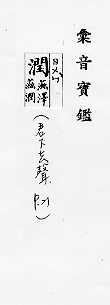 彙音寶鑑
潤 滋澤 滋潤
(君下去聲